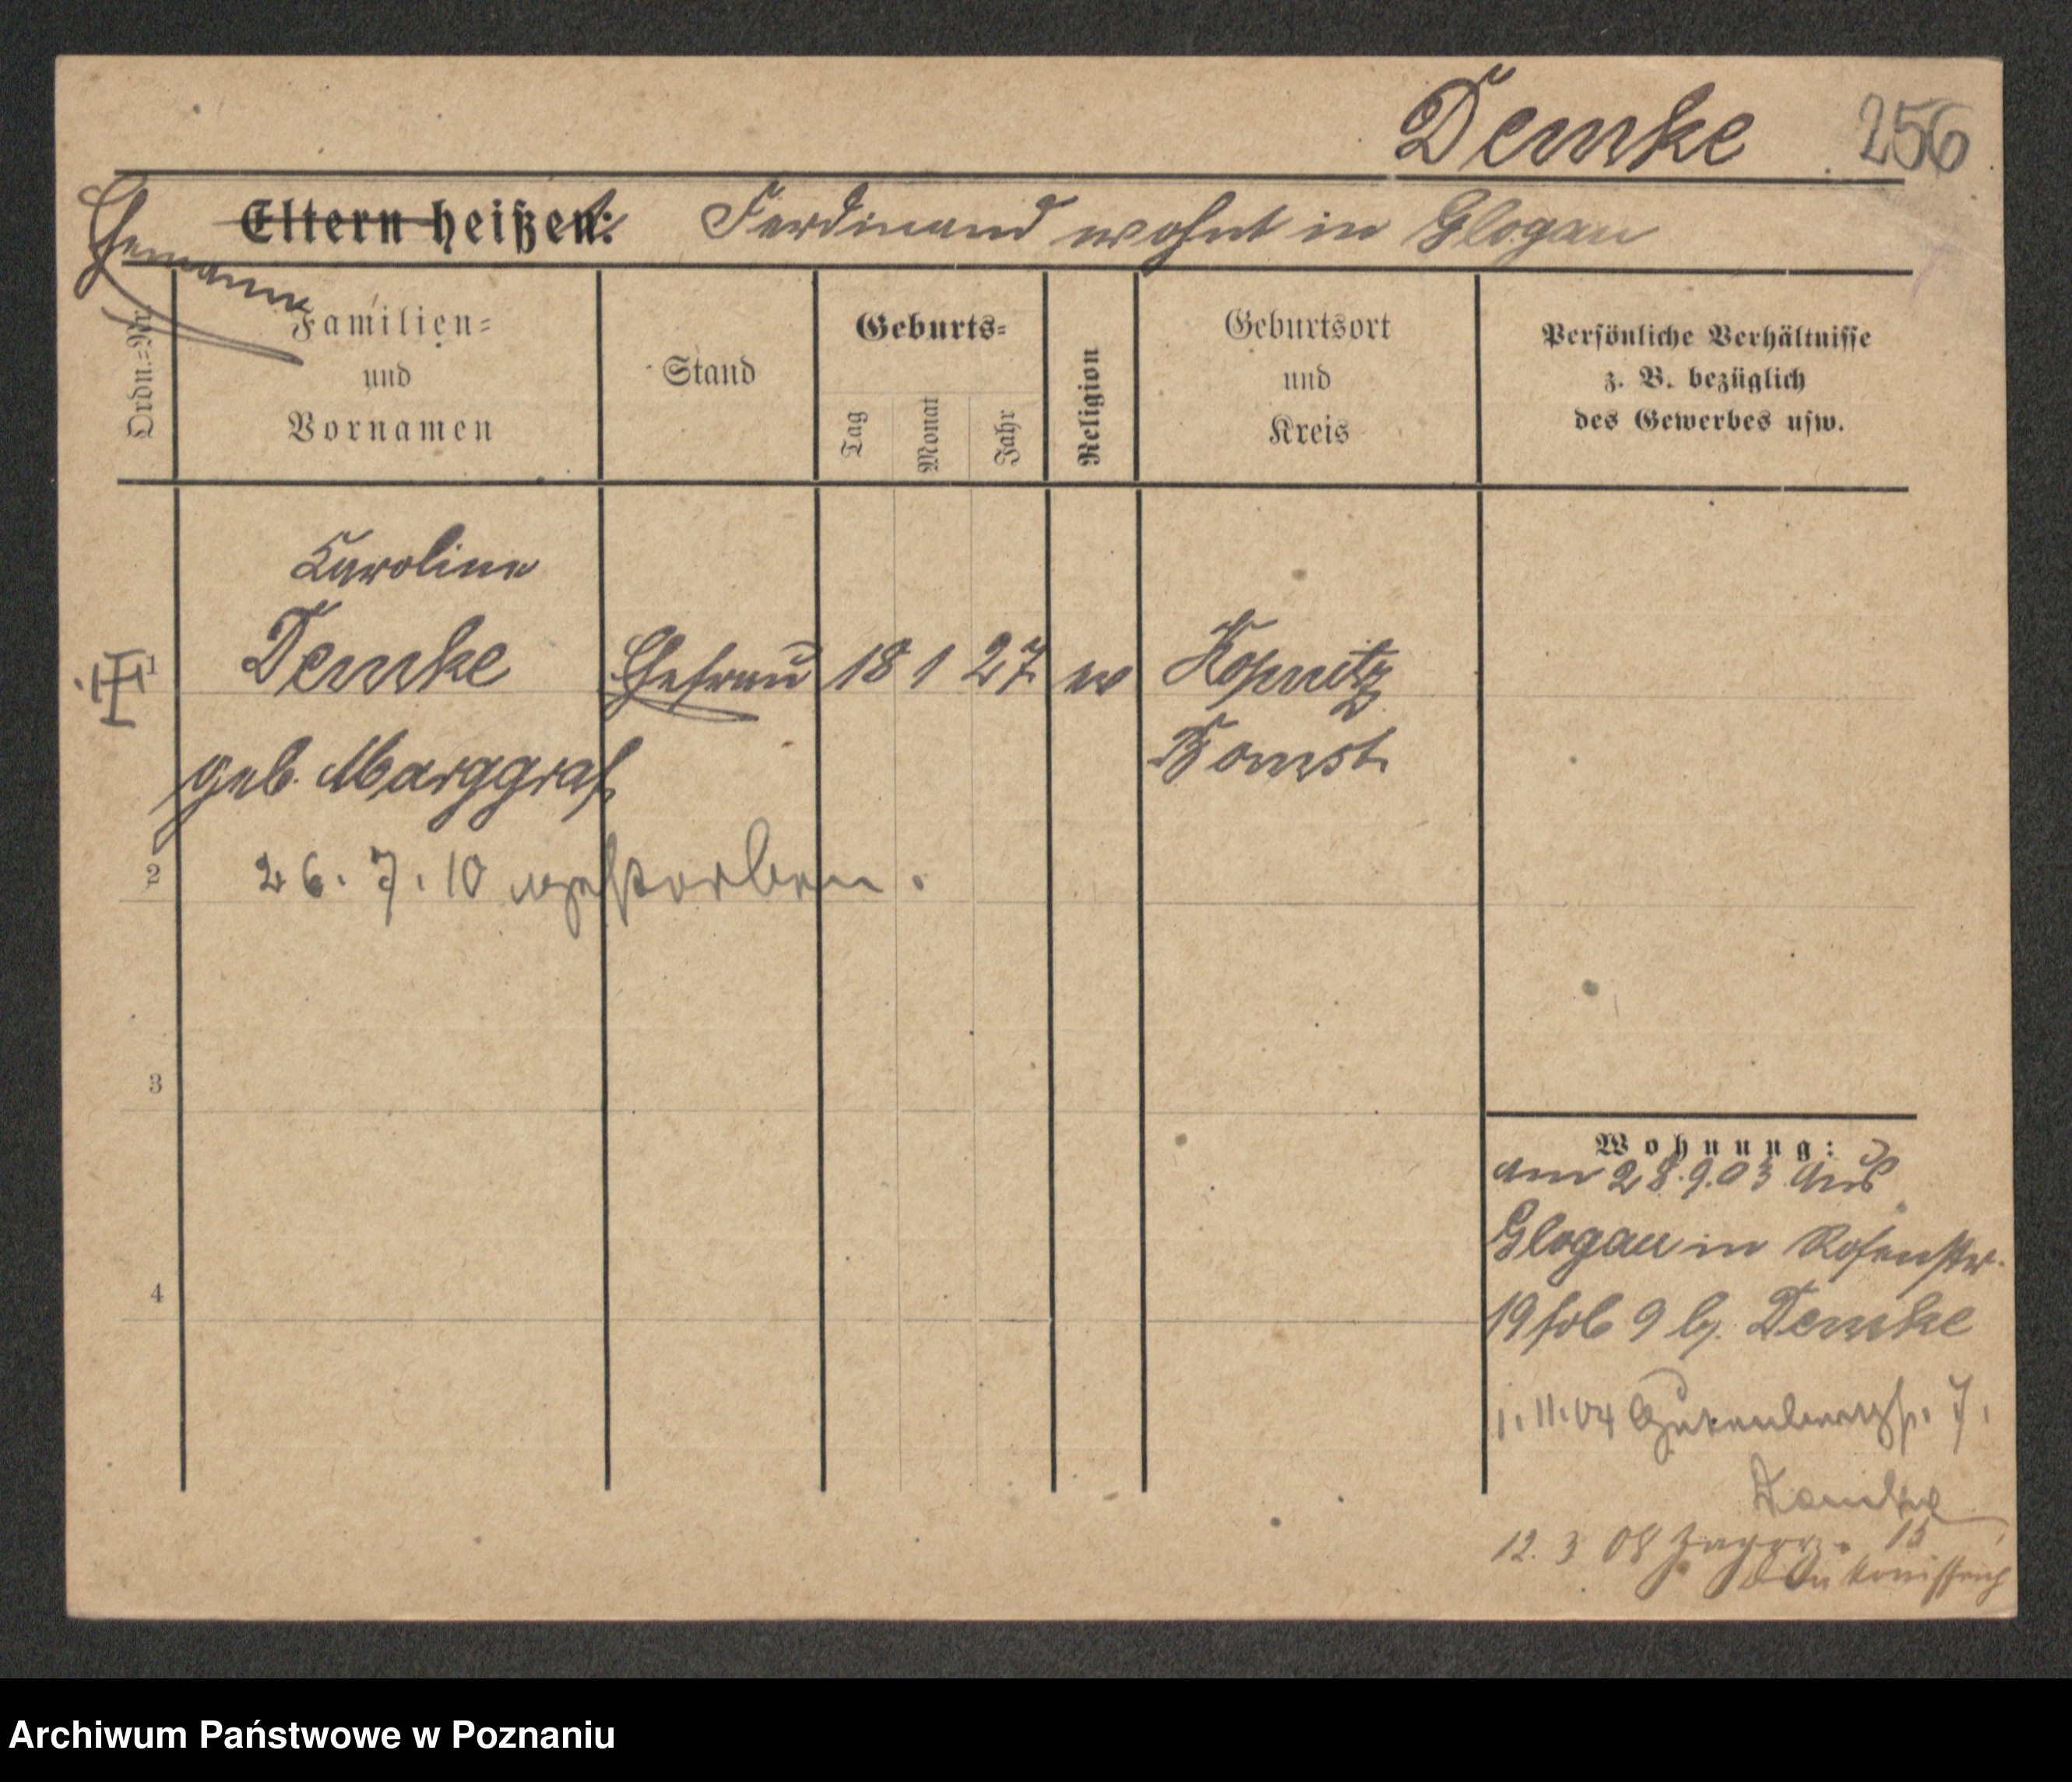 Demke 256
Ehemann Eltern heißen: Ferdinand wohnt in Glogau
Ordn.=Nr.
Familien=
und
Vornamen
Stand
Geburts=
Tag Monat Jahr
Religion
Geburtsort
und
Kreis
Persönliche Verhältnisse
z. B. bezüglich
des Gewerbes usw.
Karoline
1 Demke Ehefrau 18 1 27 ev Kopnitz
geb. Marggraf Bomst
2 26. 7. 10 gestorben.
3
4
Wohnung:
am 28.9.03 aus
Glogau in Rosenstr.
19 fol 9 b. Demke
1. 11. 04 Gutenbergstr. 7.
Demke
12. 3 08 15